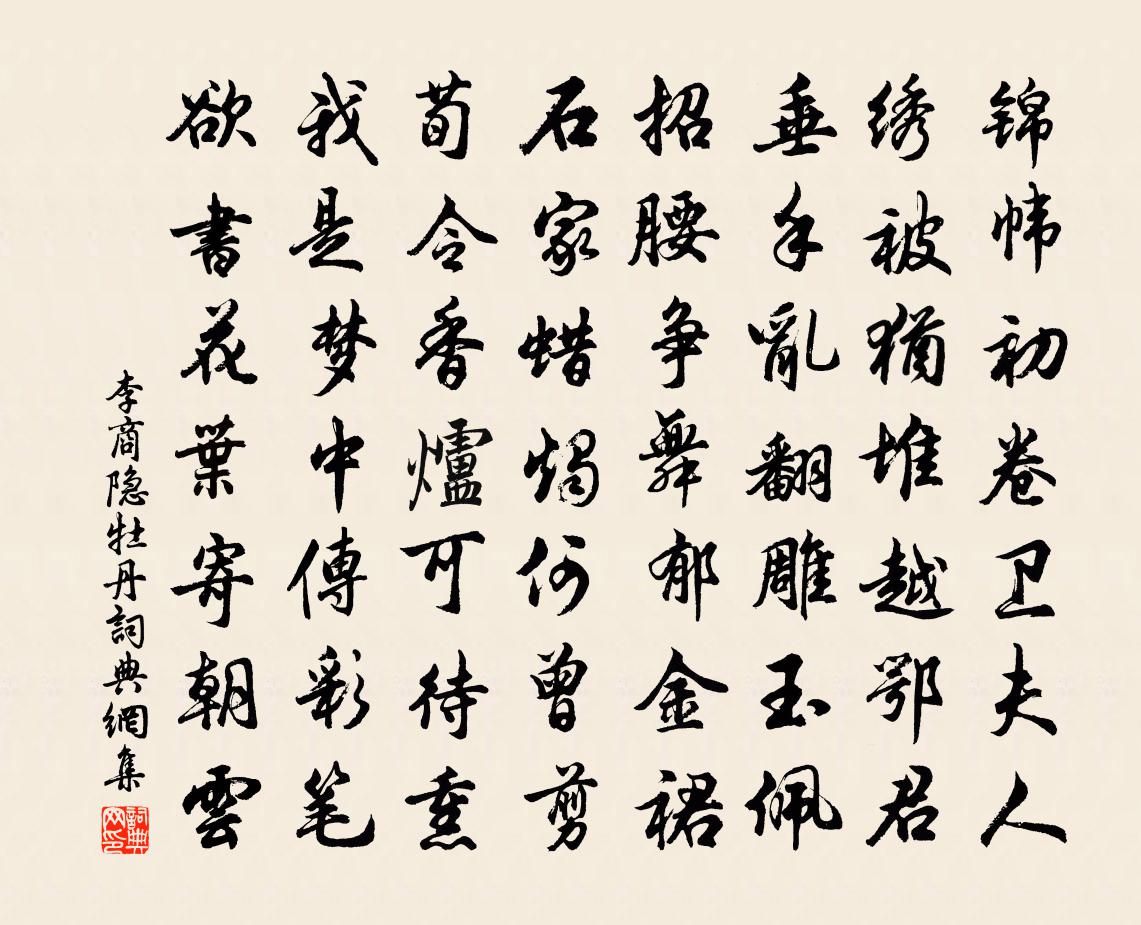 锦帏初卷卫夫人
绣被犹堆越鄂君
垂手亂翻雕玉佩
招腰争舞郁金裙
石家蜡燭何曾剪
荀令香爐可待熏
我是梦中傳彩笔
欲書花葉寄朝雲
李商隐牡丹詞典網集
詞典网印